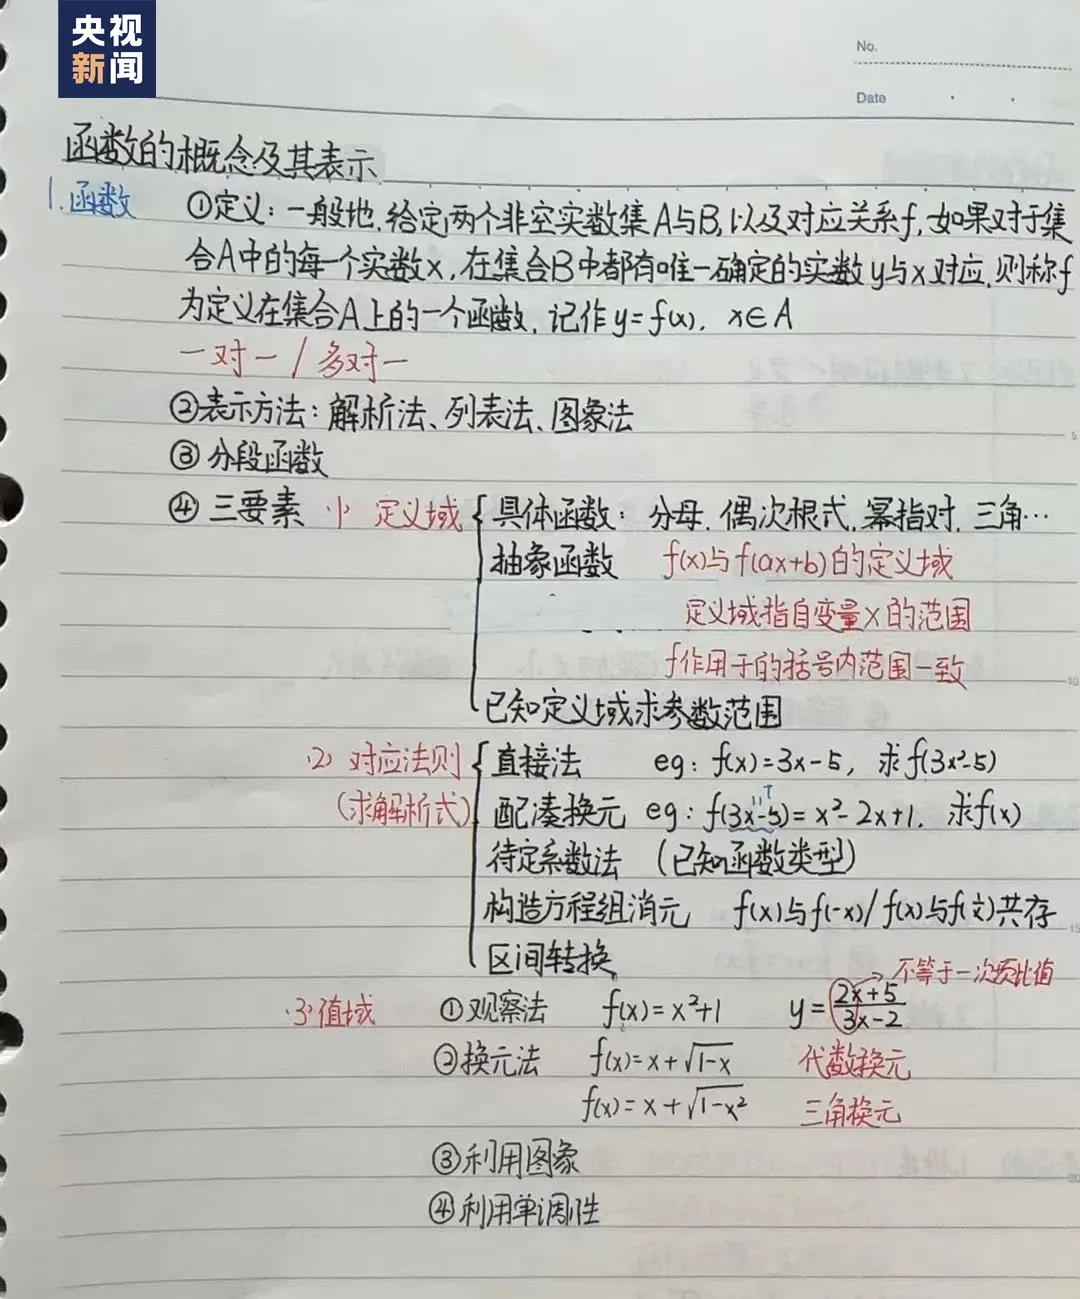 央视
新闻
No.
Date
函数的概念及其表示
1.函数 ①定义：一般地，给定两个非空实数集A与B，以及对应关系f，如果对于集
合A中的每一个实数x，在集合B中都有唯一确定的实数y与x对应，则称f
为定义在集合A上的一个函数，记作y=f(x)，x∈A
一对一/多对一
②表示方法：解析法、列表法、图象法
③分段函数
④三要素 (1) 定义域 { 具体函数：分母，偶次根式，幂指对，三角…
抽象函数 f(x)与f(ax+b)的定义域
定义域指自变量x的范围
f作用于的括号内范围一致
已知定义域求参数范围
(2) 对应法则 { 直接法 eg：f(x)=3x-5，求f(3x²-5)
(求解析式) 配凑换元 eg：f(3x-5)=x²-2x+1，求f(x)
待定系数法 (已知函数类型)
构造方程组消元 f(x)与f(-x)/f(x)与f(1/x)共存
区间转换
不等于一次项比值
(3)值域 ①观察法 f(x)=x²+1 y=(2x+5)/(3x-2)
②换元法 f(x)=x+√(1-x) 代数换元
f(x)=x+√(1-x²) 三角换元
③利用图象
④利用单调性